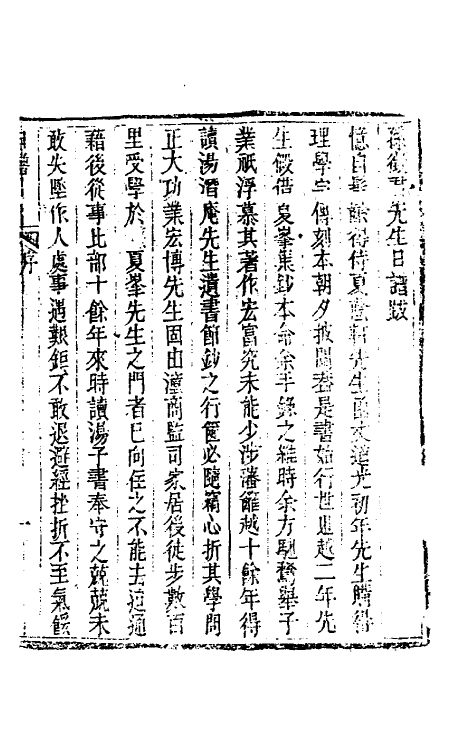 孫徵君先生日譜跋
憶自髫齡得侍夏先生函丈道光初年先生購得
理學宗傳刻本朝夕披閱蓋是書始行世也越二年先
生假借夏峯集鈔本命余手錄之維時余方馳騖舉子
業祇浮慕其著作宏富究未能少涉藩籬越十餘年得
讀湯潛庵先生遺書節鈔之行篋必隨竊心折其學問
正大功業宏博先生固由潼商監司家居後徒步數百
里受學於夏峯先生之門者已向往之不能去適通
籍後從事比部十餘年來時讀湯子書奉守之兢兢未
敢失墜作人處事遇艱鉅不敢退避經挫折不至氣餒
日譜 序 一